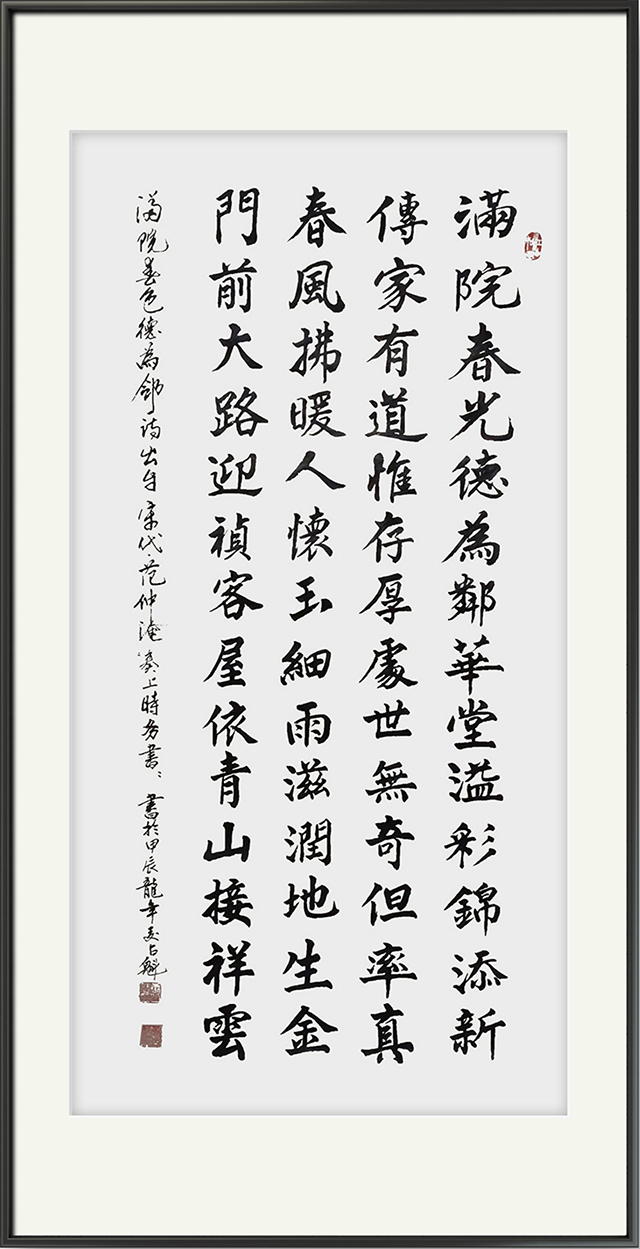 滿院春光德為鄰華堂溢彩錦添新
傳家有道惟存厚處世無奇但率真
春風拂暖人懷玉細雨滋潤地生金
門前大路迎禎客屋依青山接祥雲
滿院春色德為鄰詩出自宋代范仲淹奏上時务書 書於甲辰龍年 占魁